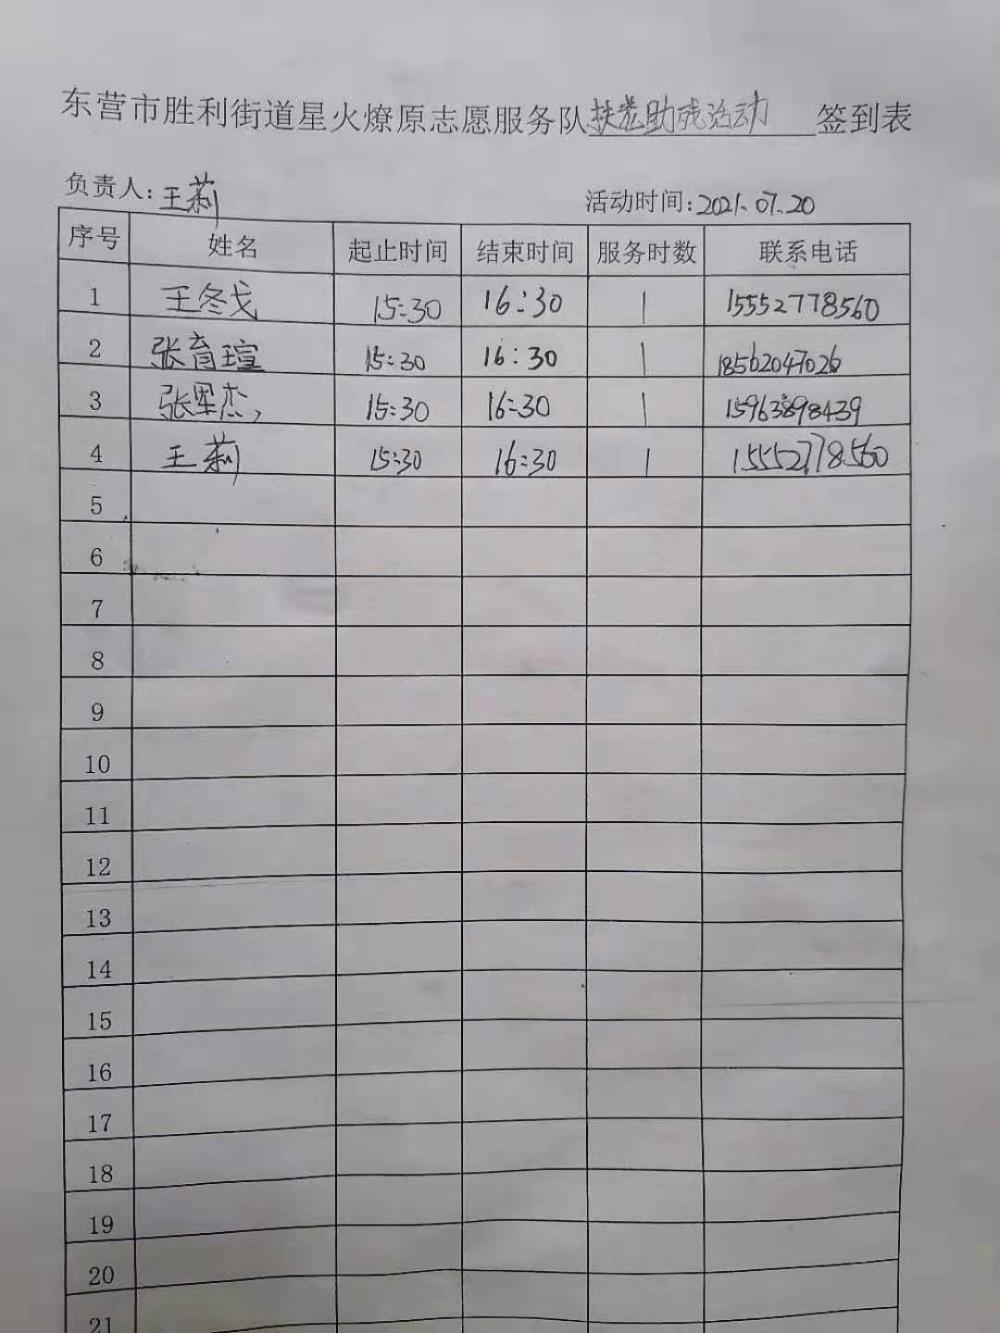 东营市胜利街道星火燎原志愿服务队扶老助残活动签到表
负责人:王莉 活动时间:2021.07.20
序号 姓名 起止时间 结束时间 服务时数 联系电话
1 王冬戈 15:30 16:30 1 15552778560
2 张育瑄 15:30 16:30 1 18562047026
3 张军杰 15:30 16:30 1 15963898439
4 王莉 15:30 16:30 1 15552778560
5
6
7
8
9
10
11
12
13
14
15
16
17
18
19
20
21